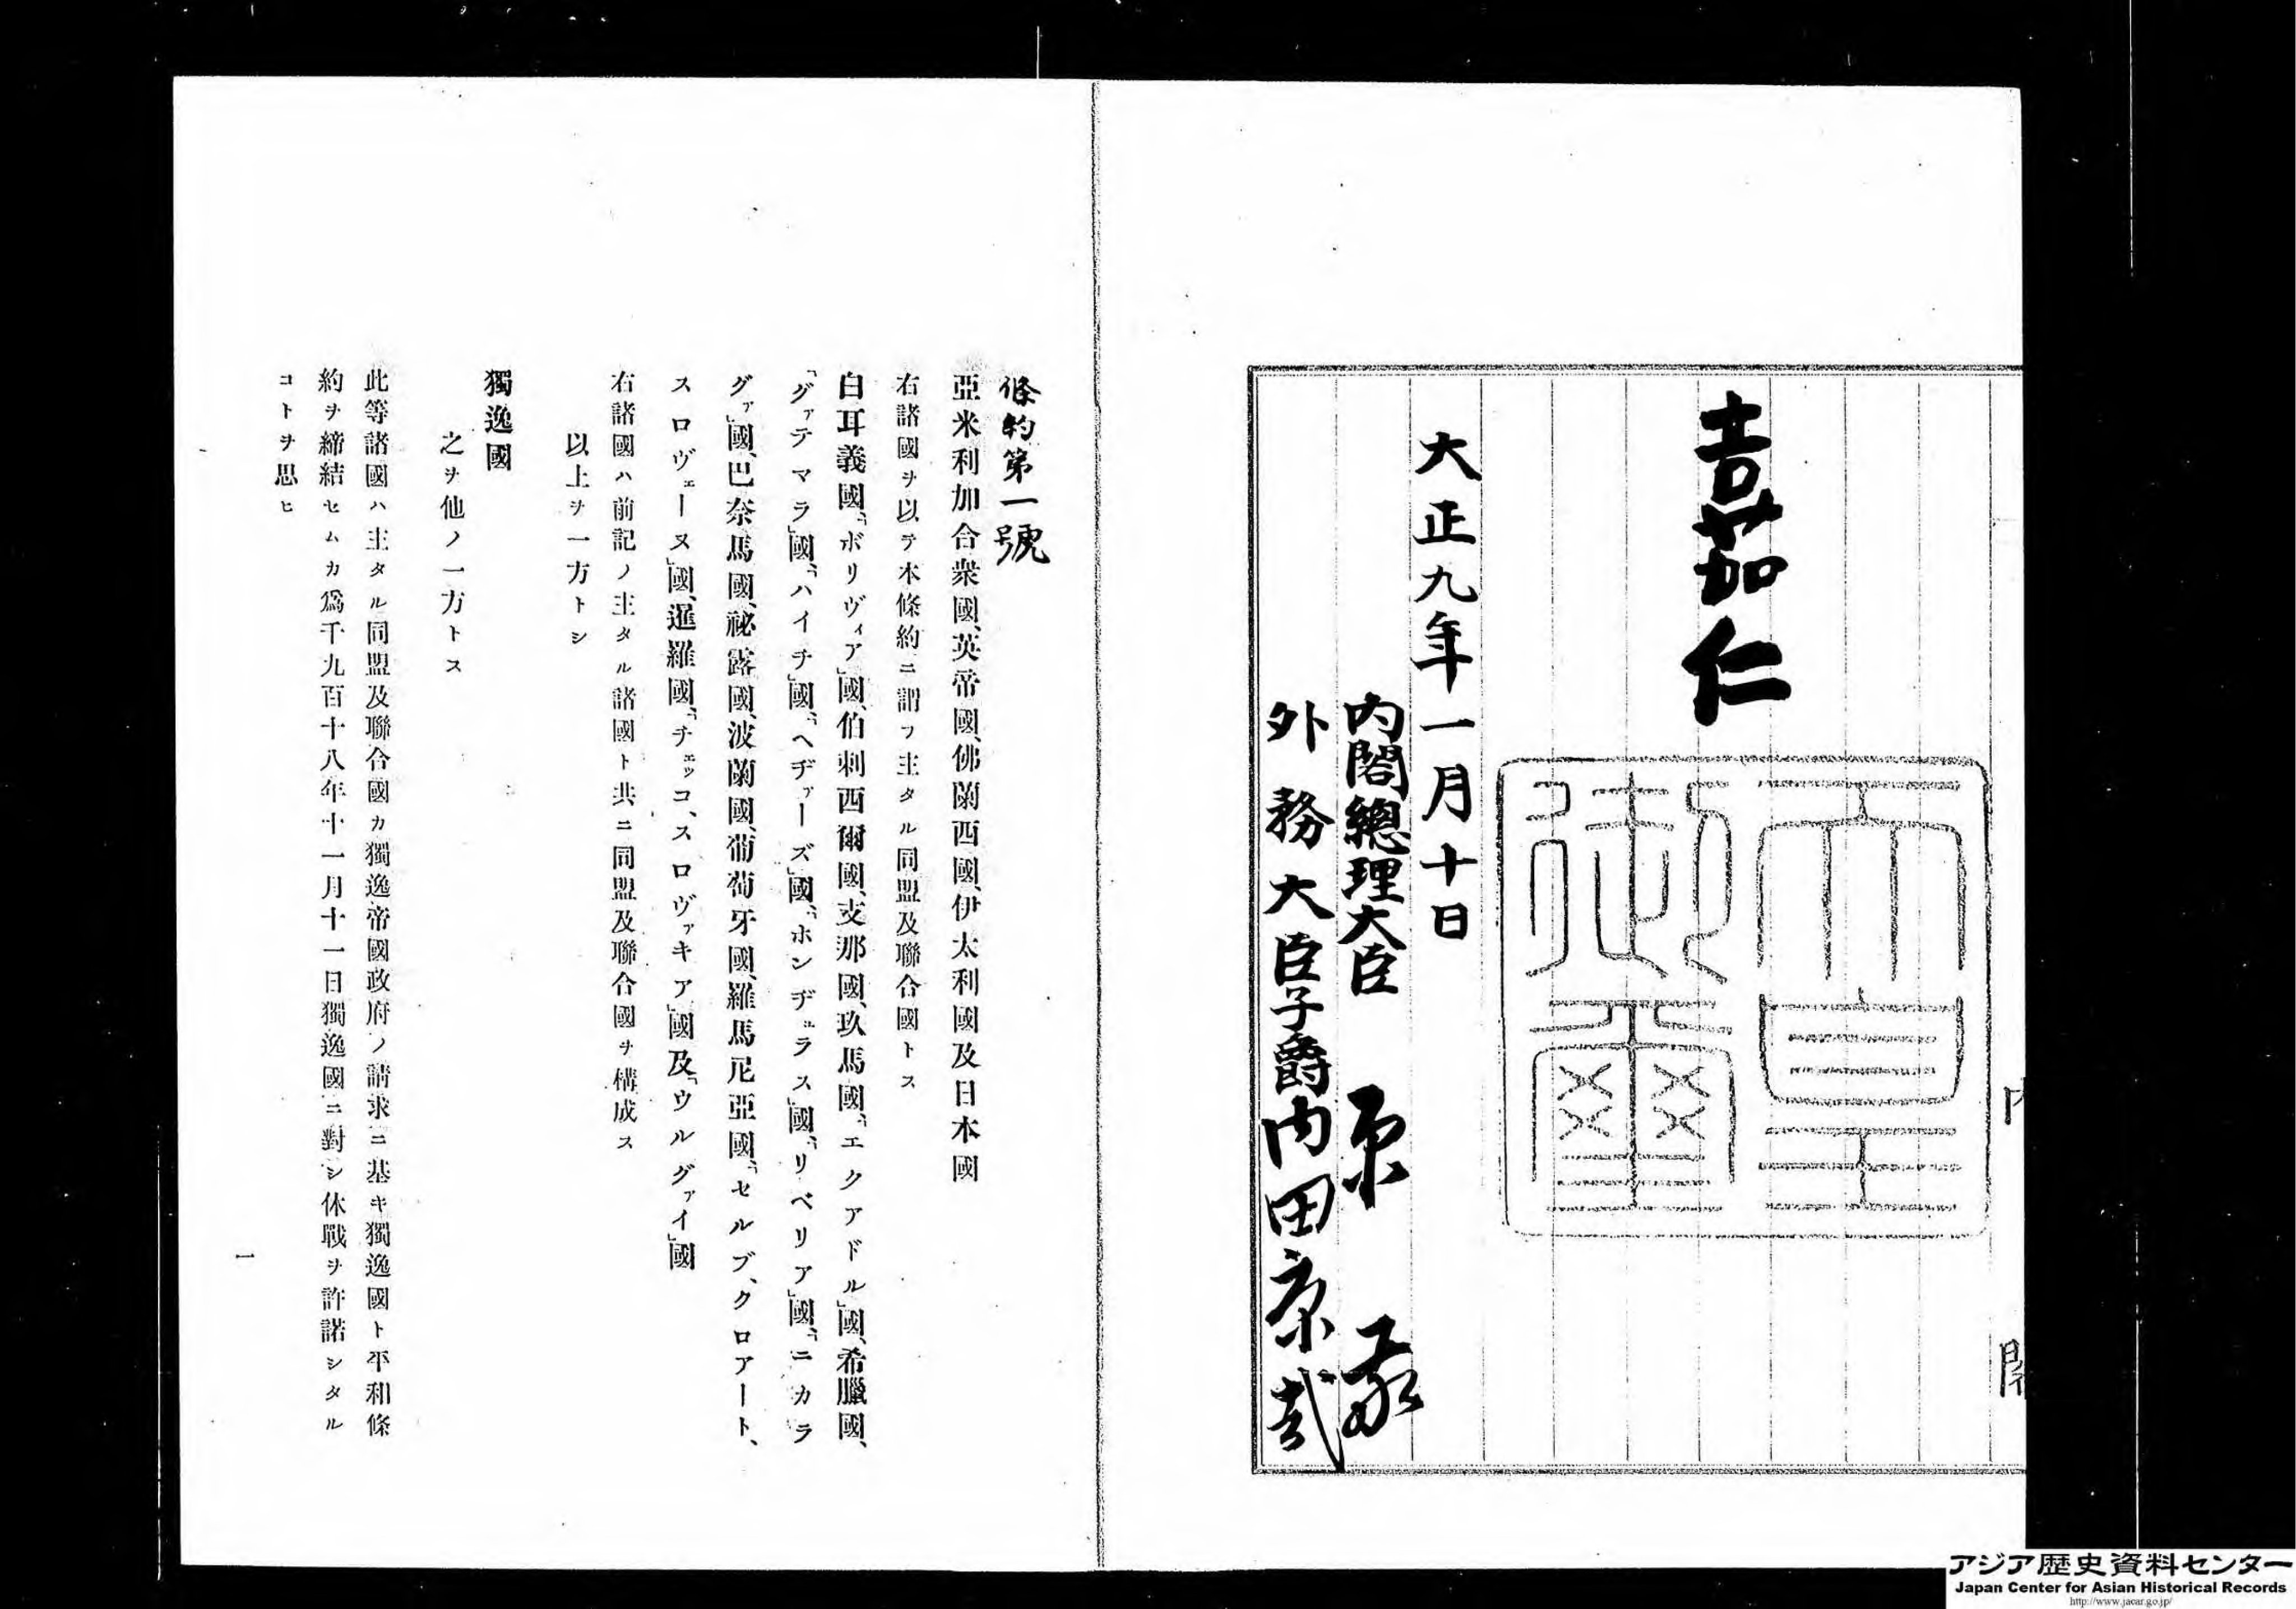 嘉仁
天皇
御璽
大正九年一月十日
内閣總理大臣 原敬
外務大臣子爵内田康哉
内閣
條約第一號
亞米利加合衆國、英帝國、佛蘭西國、伊太利國及日本國
右諸國ヲ以テ本條約ニ謂フ主タル同盟及聯合國トス
白耳義國、「ボリヴィア」國、伯剌西爾國、支那國、玖馬國、「エクアドル」國、希臘國、
「グァテマラ」國、「ハイチ」國、「ヘヂァーズ」國、「ホンヂュラス」國、「リベリア」國、「ニカラ
グァ」國、巴奈馬國、祕露國、波蘭國、葡萄牙國、羅馬尼亞國、「セルブ、クロアート、
スロヴェーヌ」國、暹羅國、「チェッコ、スロヴァキア」國及「ウルグァイ」國
右諸國ハ前記ノ主タル諸國ト共ニ同盟及聯合國ヲ構成ス
以上ヲ一方トシ
獨逸國
之ヲ他ノ一方トス
此等諸國ハ主タル同盟及聯合國カ獨逸帝國政府ノ請求ニ基キ獨逸國ト平和條
約ヲ締結セムカ爲千九百十八年十一月十一日獨逸國ニ對シ休戰ヲ許諾シタル
コトヲ思ヒ
一
アジア歴史資料センター
Japan Center for Asian Historical Records
http://www.jacar.go.jp/